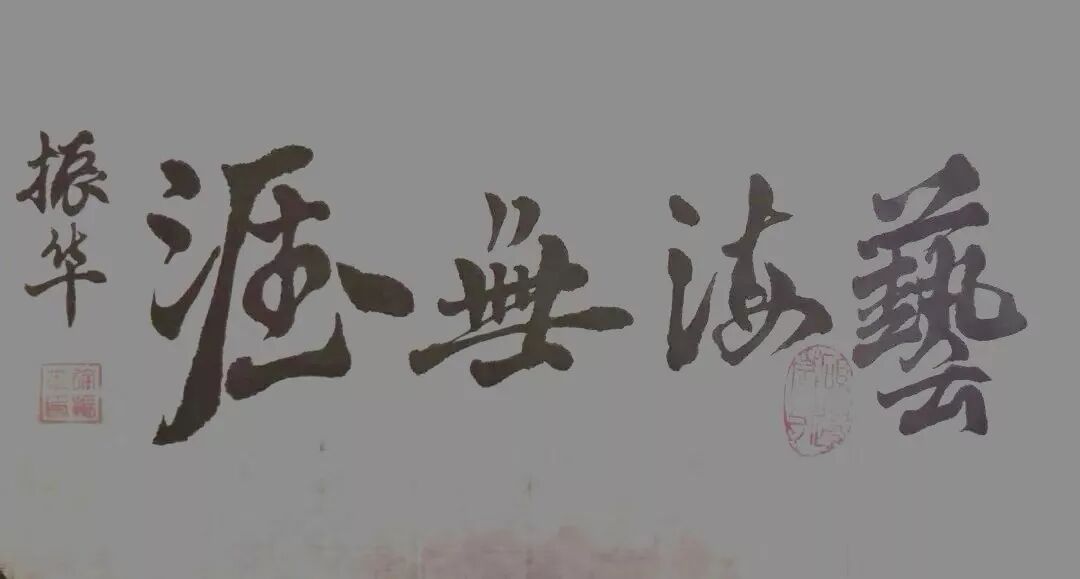 藝海無涯
振华